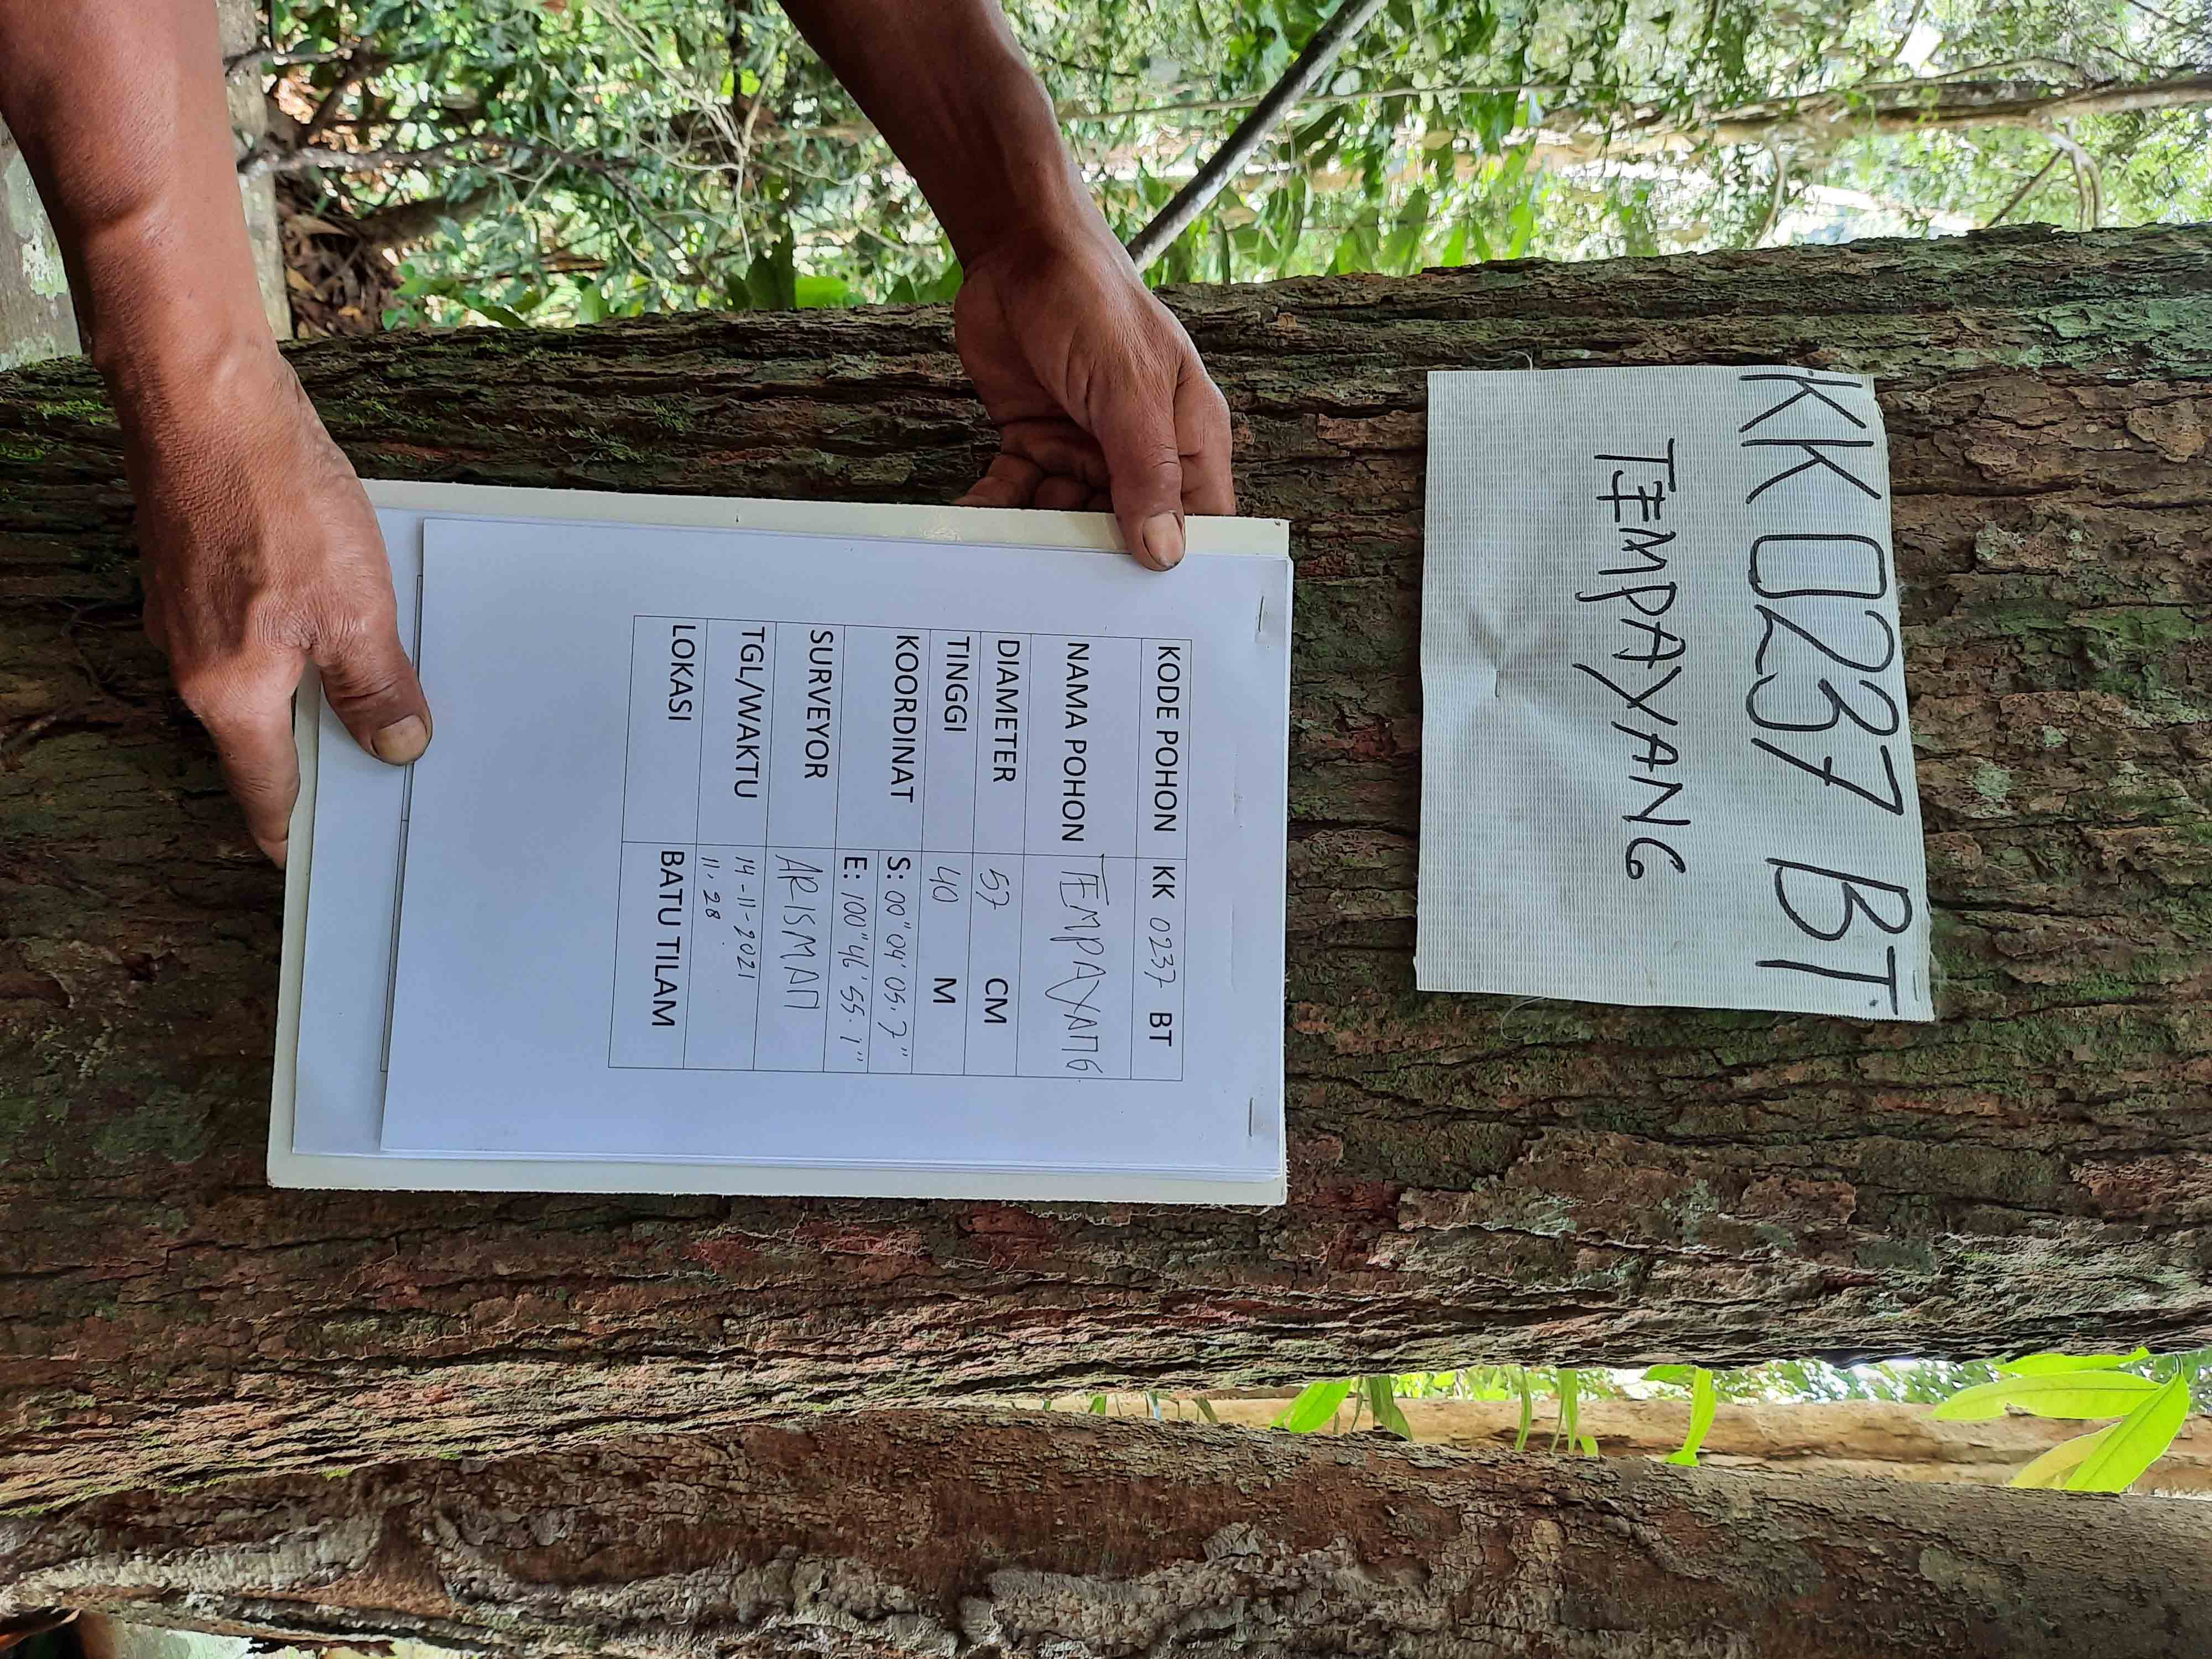 KK 0237 BT
TEMPAYANG
KODE POHON KK 0237 BT
NAMA POHON TEMPAYANG
DIAMETER 57 CM
TINGGI 40 M
KOORDINAT S: 00" 04' 05.7"
E: 100" 46' 55.1"
SURVEYOR ARISMAN
TGL/WAKTU 14-11-2021
11.28
LOKASI BATU TILAM